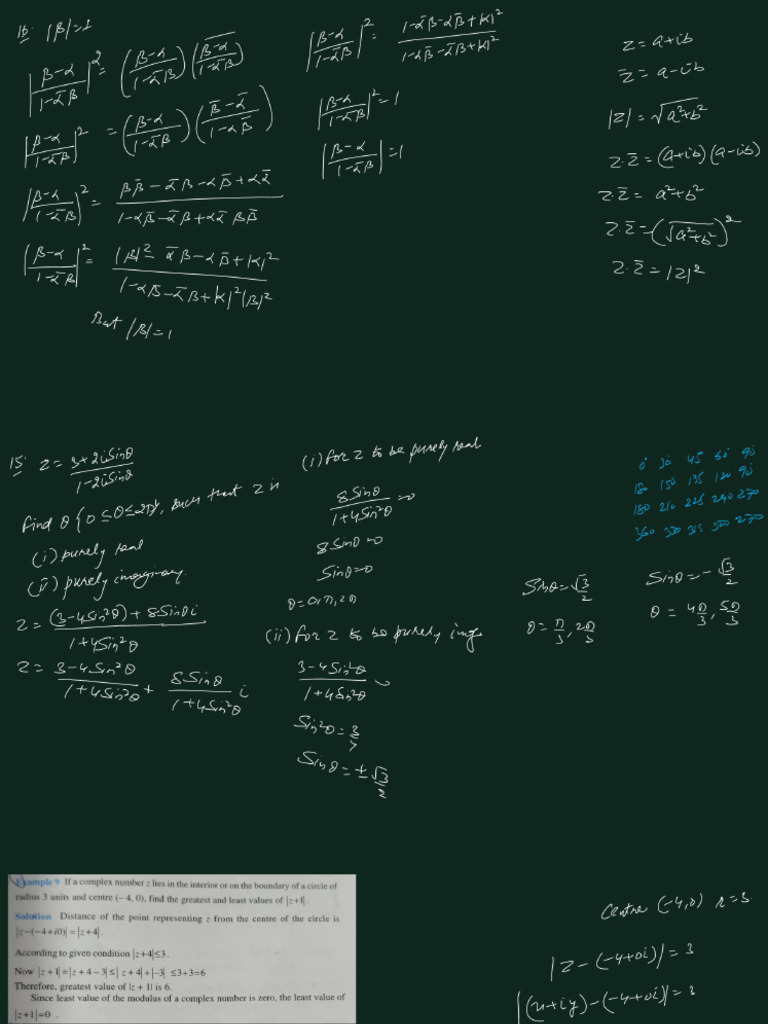 16. |β|=1
|β-α / 1-ᾱβ|² = (β-α / 1-ᾱβ) (β-α / 1-ᾱβ)‾
|β-α / 1-ᾱβ|² = (β-α / 1-ᾱβ) (β̄-ᾱ / 1-αβ̄)
|β-α / 1-ᾱβ|² = ββ̄ - ᾱβ - αβ̄ + αᾱ / 1-αβ̄-ᾱβ+αᾱ ββ̄
|β-α / 1-ᾱβ|² = |β|² - ᾱβ - αβ̄ + |α|² / 1-αβ̄-ᾱβ+|α|²|β|²
But |β|=1
|β-α / 1-ᾱβ|² = 1-ᾱβ-αβ̄+|α|² / 1-αβ̄-ᾱβ+|α|²
|β-α / 1-ᾱβ|² = 1
|β-α / 1-ᾱβ| = 1
z = a+ib
z̄ = a-ib
|z| = √a²+b²
z.z̄ = (a+ib)(a-ib)
z.z̄ = a²+b²
z.z̄ = (√a²+b²)²
z.z̄ = |z|²
15. z = 3+2iSinθ / 1-2iSinθ
find θ {0≤θ≤2π}, such that z is
(i) purely real
(ii) purely imaginary.
z = (3-4Sin²θ)+8Sinθi / 1+4Sin²θ
z = 3-4Sin²θ / 1+4Sin²θ + 8Sinθ / 1+4Sin²θ i
(i) for z to be purely real
8Sinθ / 1+4Sin²θ =0
8Sinθ=0
Sinθ=0
θ=0,π,2π
(ii) for z to be purely img
3-4Sin²θ / 1+4Sin²θ
Sin²θ=3/
Sinθ=±√3/2
0 30 45 60 90
180 150 135 120 90
180 210 225 240 270
360 330 315 300 270
Sinθ=√3/2
θ=π/3, 2π/3
Sinθ=-√3/2
θ = 4π/3, 5π/3
Example 9 If a complex number z lies in the interior or on the boundary of a circle of
radius 3 units and centre (– 4, 0), find the greatest and least values of |z+1|.
Solution Distance of the point representing z from the centre of the circle is
|z–(–4+i0)| = |z+4|.
According to given condition |z+4|≤3.
Now |z+1|=|z+4–3|≤|z+4|+|–3| ≤3+3=6
Therefore, greatest value of |z + 1| is 6.
Since least value of the modulus of a complex number is zero, the least value of
|z+1|=0 .
Centre (-4,0) r=3
|z-(-4+0i)|=3
|(x+iy)-(-4+0i)|=3